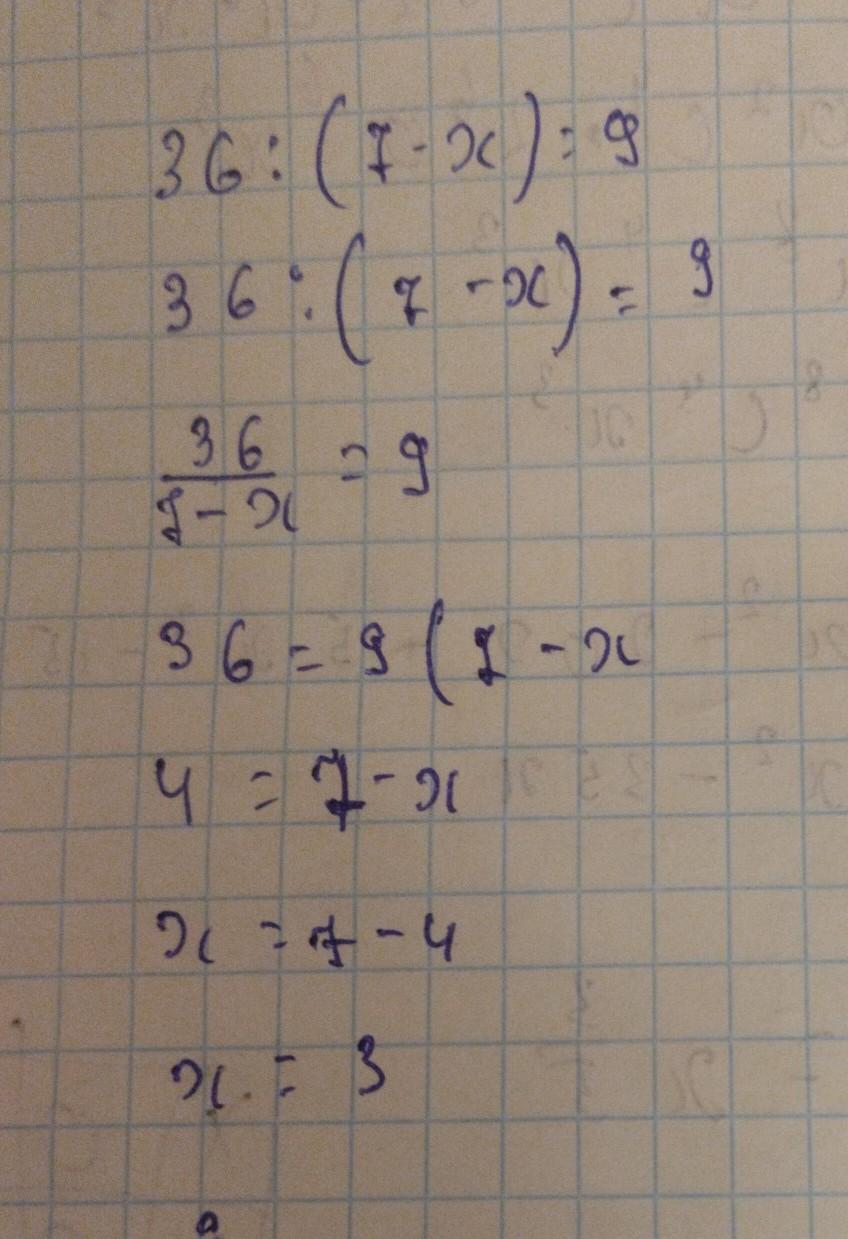 36:(7-x)=9
36:(7-x)=9
36/(7-x)=9
36=9(7-x
4=7-x
x=7-4
x=3